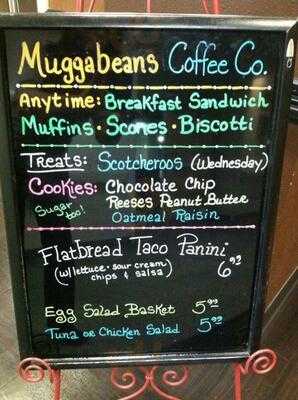 Muggabeans Coffee Co.
Anytime: Breakfast Sandwich
Muffins · Scones · Biscotti
Treats: Scotcheroos (Wednesday)
Cookies: Chocolate Chip
Sugar too! Reeses Peanut Butter
Oatmeal Raisin
Flatbread Taco Panini
(w/lettuce · sour cream 6.92
chips & salsa)
Egg Salad Basket 5.92
Tuna or Chicken Salad 5.92